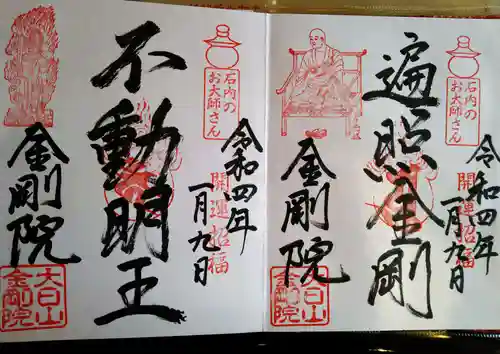 石内の
お大師さん
遍照金剛
開運招福
令和四年
一月九日
金剛院
大日山
金剛院
石内の
お大師さん
不動明王
開運招福
令和四年
一月九日
金剛院
大日山
金剛院